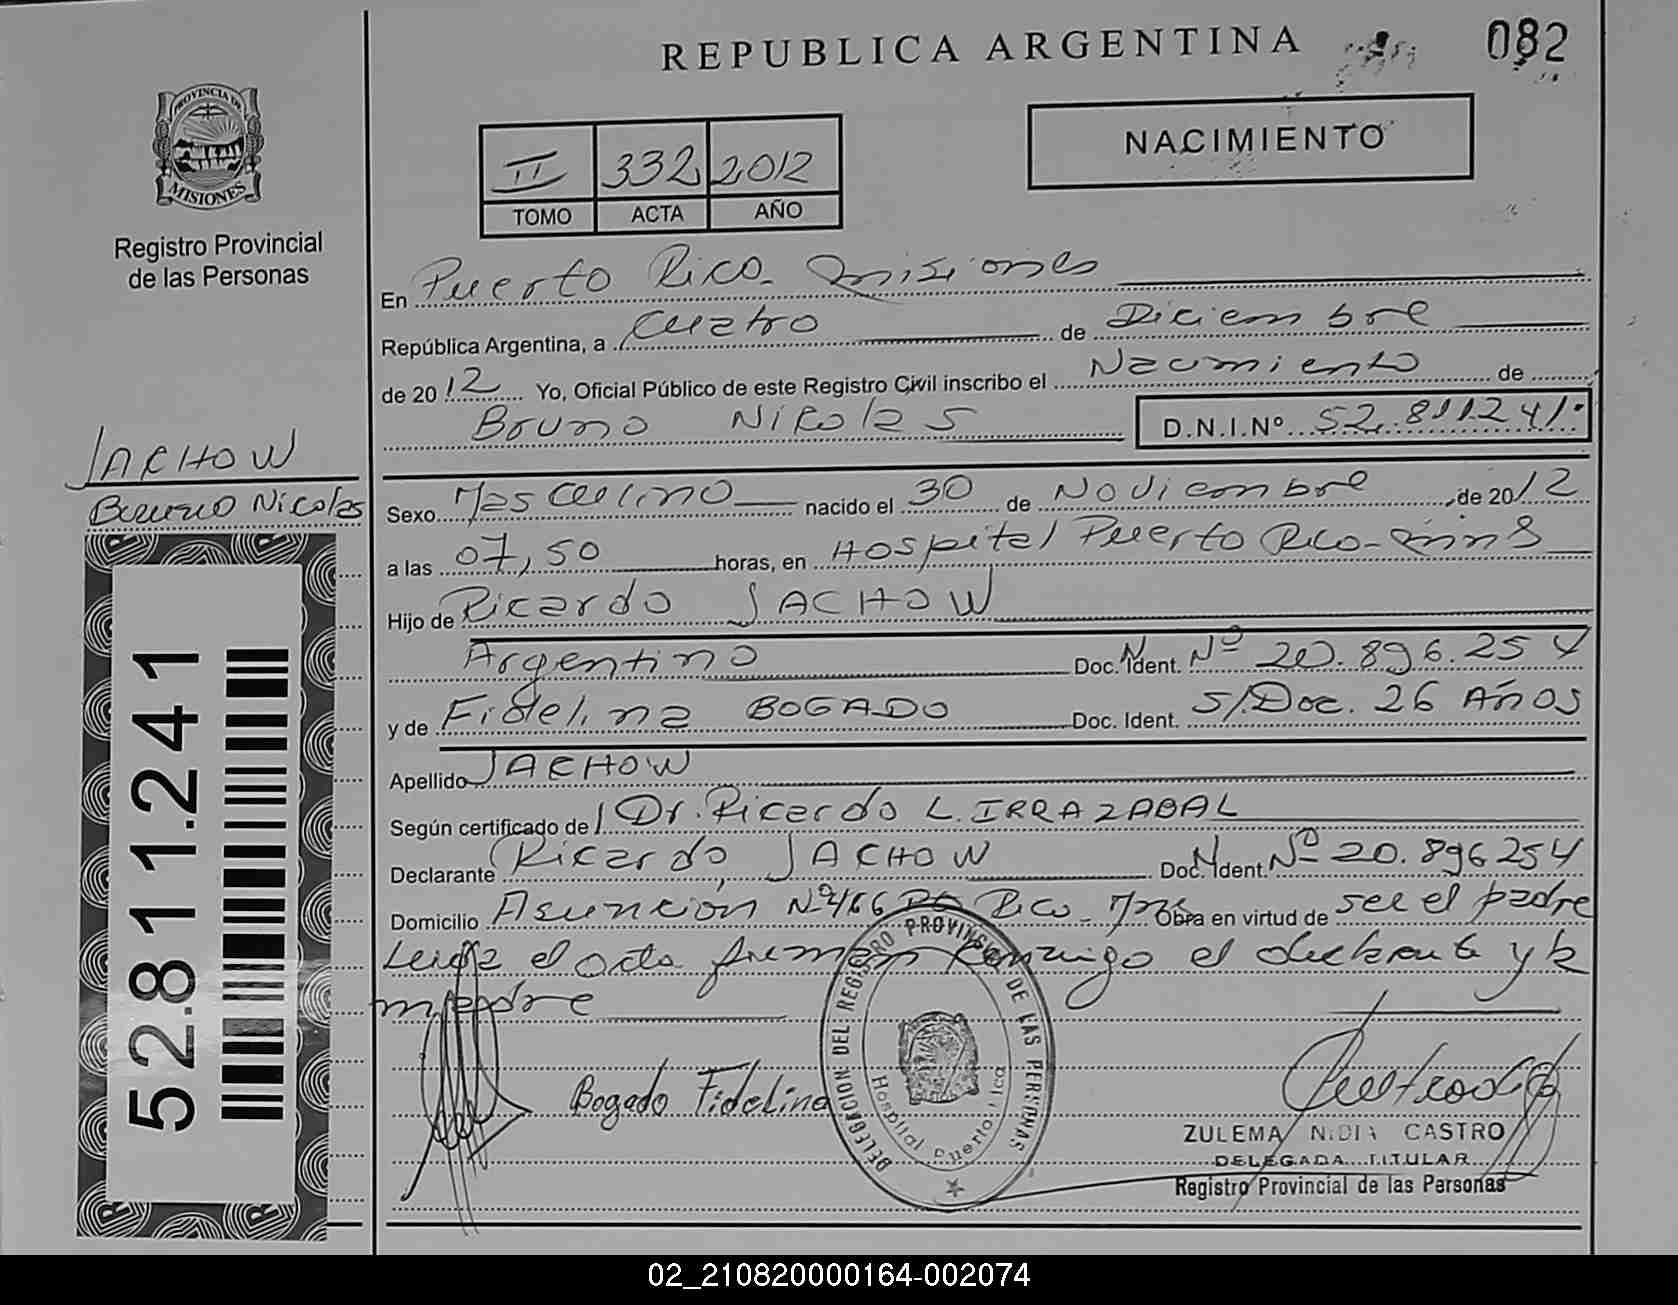 REPUBLICA ARGENTINA
082
PROVINCIA DE
MISIONES
Registro Provincial
de las Personas
II 332 2012
TOMO ACTA AÑO
NACIMIENTO
En Puerto Rico - Misiones
República Argentina, a Cuatro de Diciembre
de 2012 Yo, Oficial Público de este Registro Civil inscribo el Nacimiento de
Bruno Nikolas D.N.I.Nº 52.811241.
JACHOW
Bruno Nicolas
Sexo Masculino nacido el 30 de Noviembre de 2012
a las 07,50 horas, en Hospital Puerto Rico - Mnes
Hijo de Ricardo JACHOW
Argentino Doc. Ident. Nº 20.896.254
y de Fidelina BOGADO Doc. Ident. S/Doc. 26 AÑOS
Apellido JACHOW
Según certificado de Dr. Ricardo L. IRRAZABAL
Declarante Ricardo JACHOW Doc. Ident. Nº 20.896254
Domicilio Asunción Nº 466 Pto Rico - Mns Obra en virtud de ser el padre
Leida el acta firman conmigo el declarante y la
madre
52.811.241
Bogado Fidelina
DELEGACION DEL REGISTRO PROVINCIAL DE LAS PERSONAS
Hospital Puerto Rico
ZULEMA NIDIA CASTRO
DELEGADA TITULAR
Registro Provincial de las Personas
02_210820000164-002074